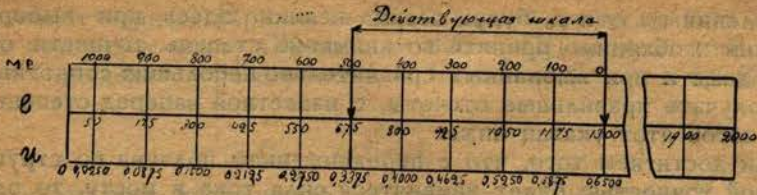 Действующая шкала
мв 1000 900 800 700 600 500 400 300 200 100 0
l 50 175 300 425 550 675 800 925 1050 1175 1300 1900 2000
u 0 0,0250 0,0875 0,1500 0,2125 0,2750 0,3375 0,4000 0,4625 0,5250 0,5875 0,6500